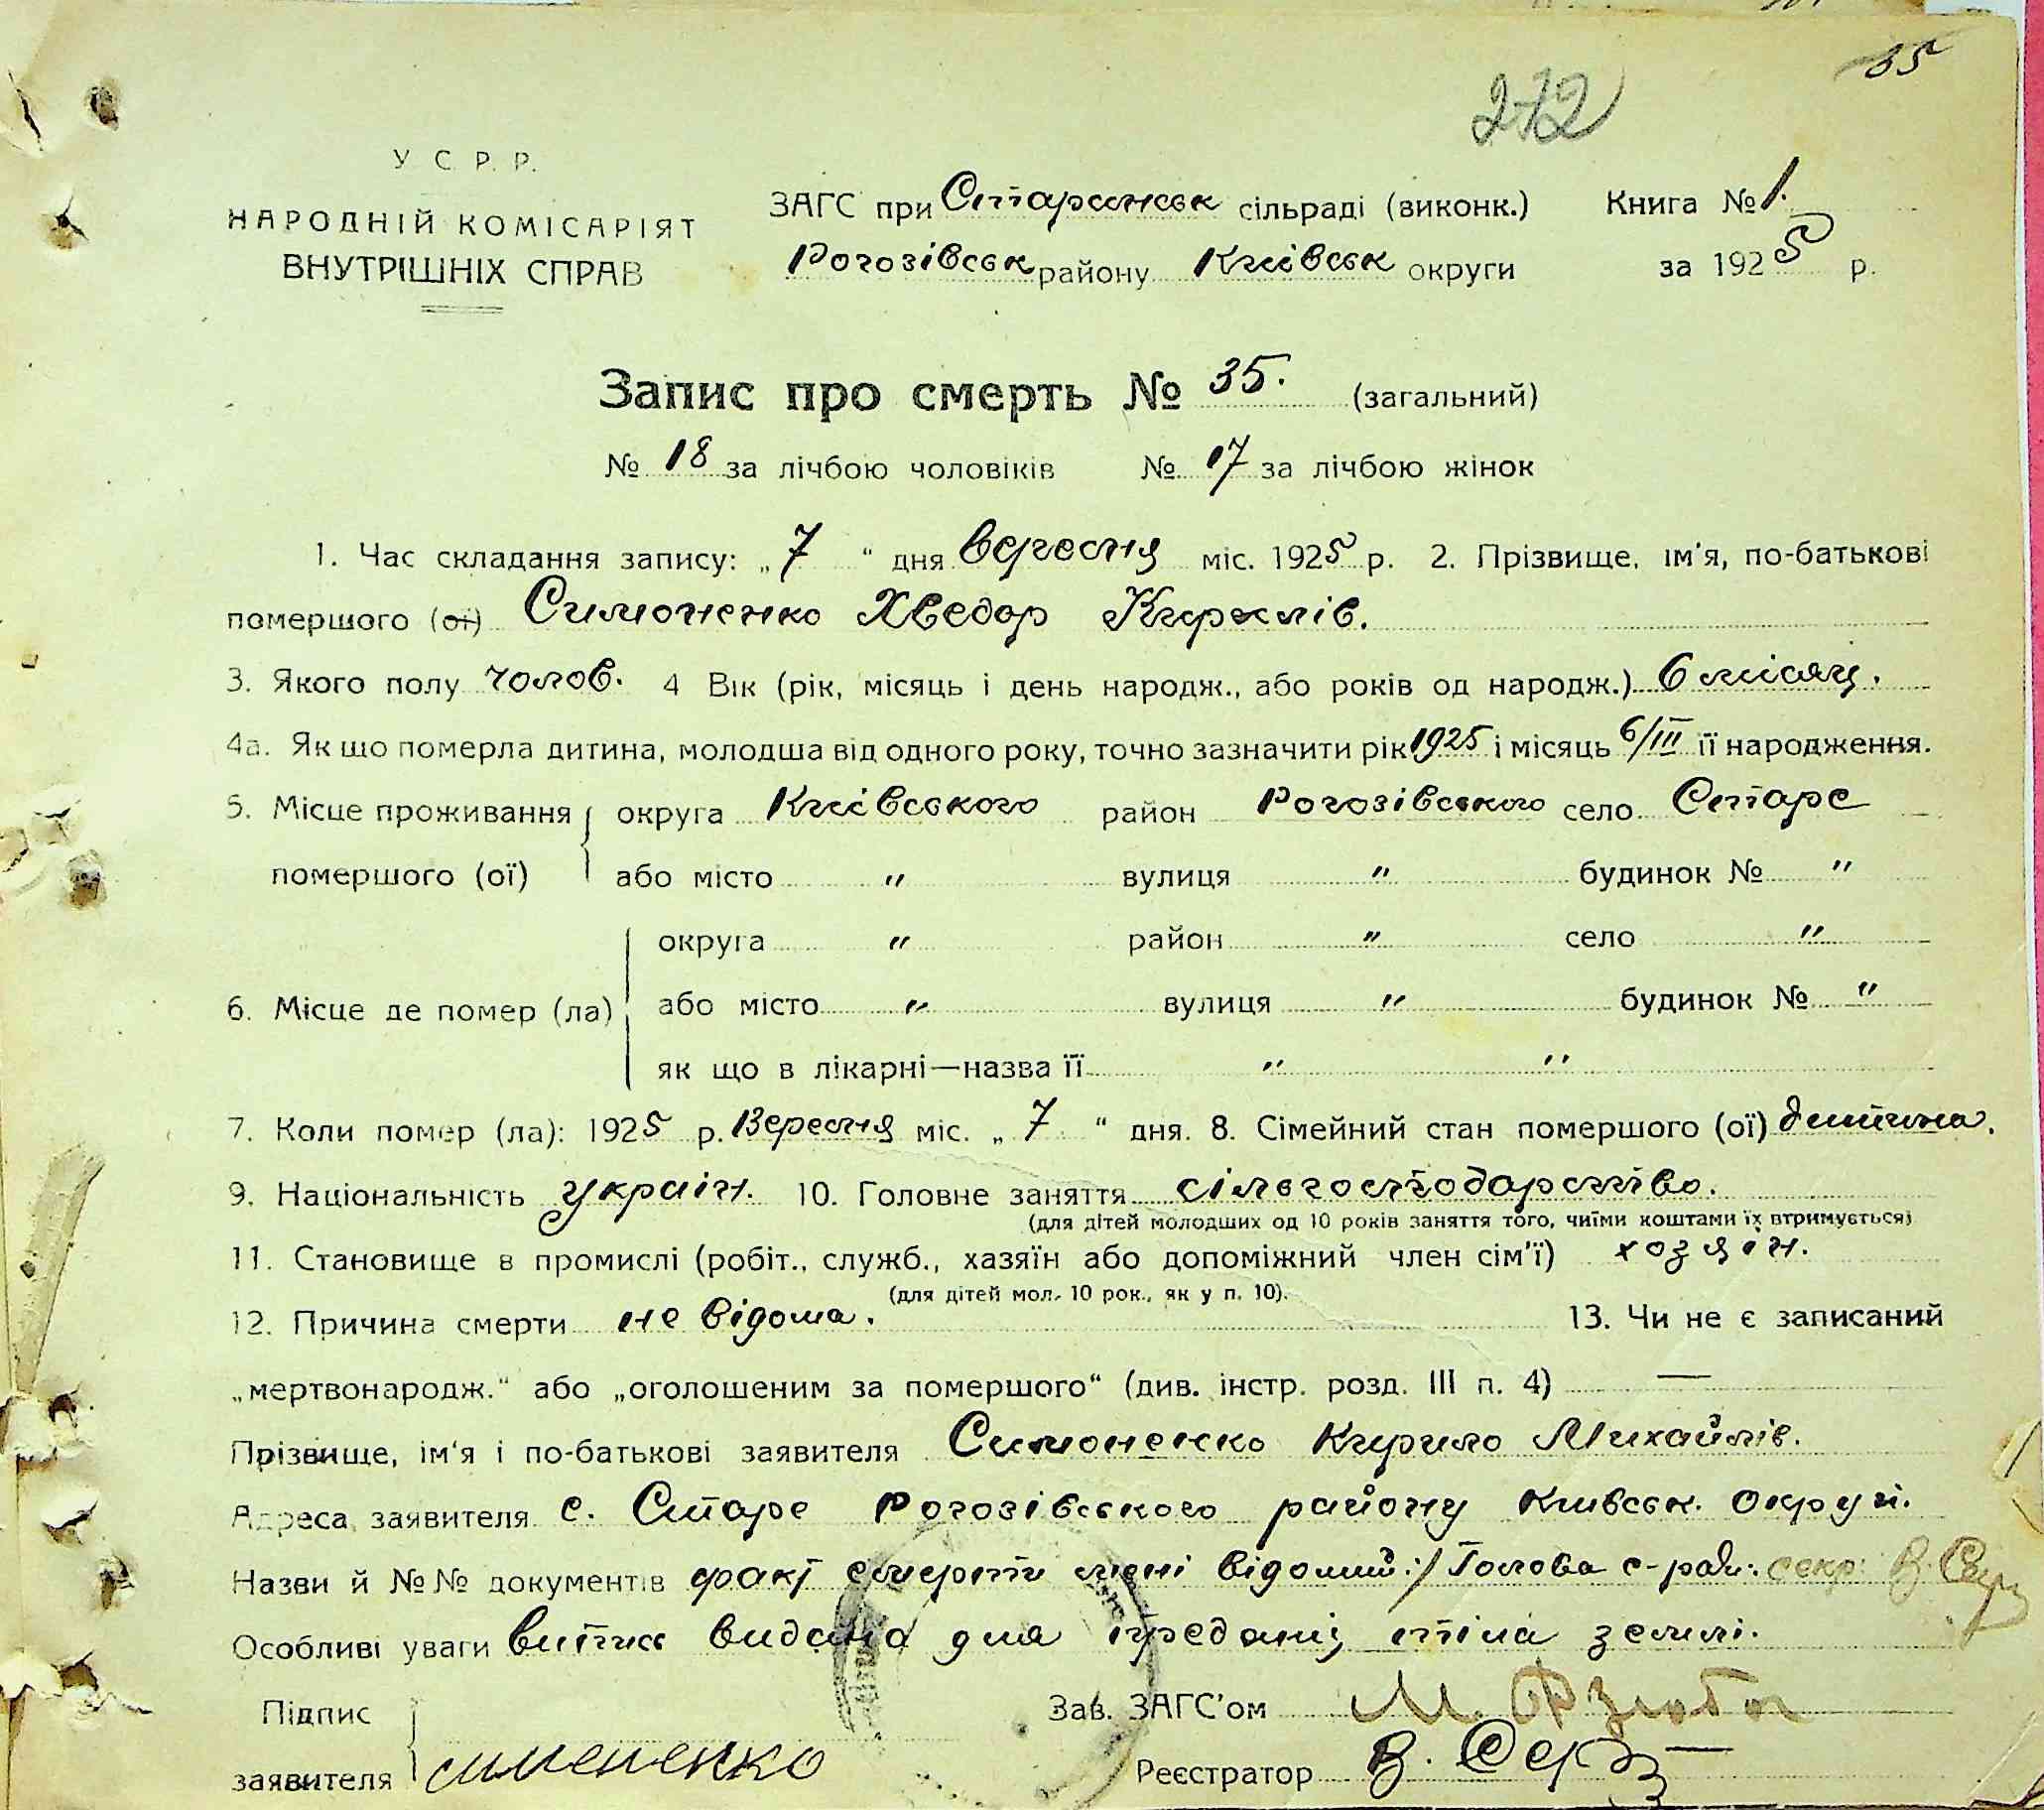 35
272
У С. Р. Р.
НАРОДНІЙ КОМІСАРІЯТ
ВНУТРІШНІХ СПРАВ
ЗАГС при Старинськ сільраді (виконк.) Книга № 1.
Рогозівськ району Київськ округи за 1925 р.
Запис про смерть № 35. (загальний)
№ 18 за лічбою чоловіків № 17 за лічбою жінок
1. Час складання запису: „ 7 “ дня вересня міс. 1925 р. 2. Прізвище, ім'я, по-батькові
помершого (ої) Симоненко Хведор Кирилів.
3. Якого полу чолов. 4 Вік (рік, місяць і день народж., або років од народж.) 6 місяц.
4а. Як що померла дитина, молодша від одного року, точно зазначити рік 1925 і місяць 6/III її народження.
5. Місце проживання округа Київського район Рогозівського село Старе
помершого (ої) або місто " вулиця " будинок № "
округа " район " село "
6. Місце де помер (ла) або місто " вулиця " будинок № "
як що в лікарні—назва її " "
7. Коли помер (ла): 1925 р. Вересня міс. „ 7 “ дня. 8. Сімейний стан помершого (ої) дитина.
9. Національність україн. 10. Головне заняття сільгосподарство.
(для дітей молодших од 10 років заняття того, чиїми коштами їх втримується)
11. Становище в промислі (робіт., служб., хазяїн або допоміжний член сім'ї) хозяін.
(для дітей мол. 10 рок., як у п. 10).
12. Причина смерти не відома. 13. Чи не є записаний
„мертвонародж.“ або „оголошеним за помершого“ (див. інстр. розд. III п. 4) —
Прізвище, ім'я і по-батькові заявителя Симоненко Кирило Михайлів.
Адреса заявителя с. Старе Рогозівського району Київськ. округи.
Назви й №№ документів факт смерти мені відомий:/ Голова с-ради: секр: В.
Особливі уваги витик видана для предаці тіла землі.
Підпис
Зав. ЗАГС'ом М.
заявителя симененко
Реєстратор В.